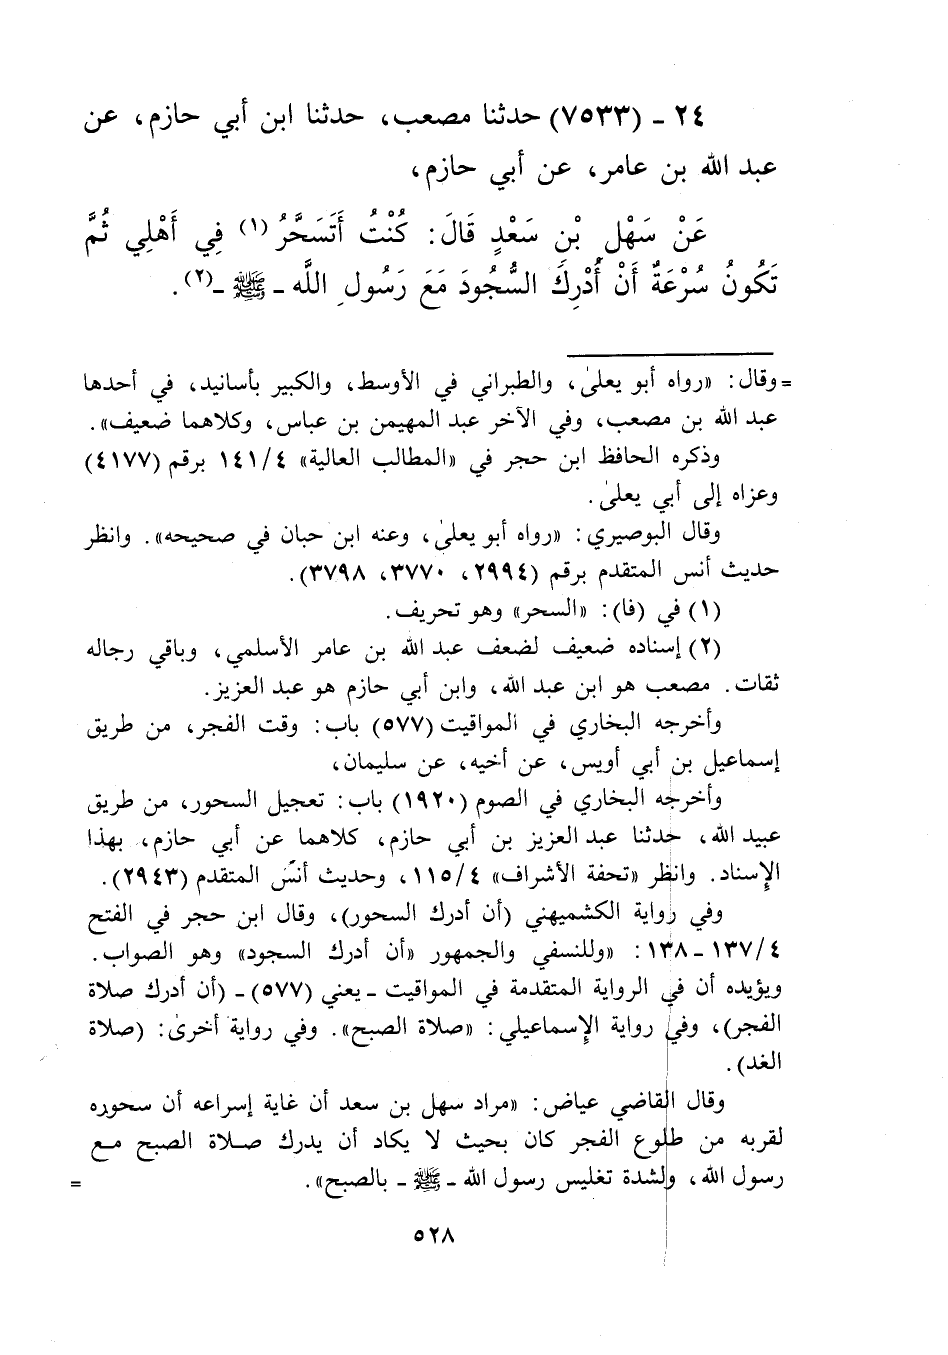 ٢٤ - (٧٥٣٣) حدثنا مصعب، حدثنا ابن أبي حازم، عن
عبد الله بن عامر، عن أبي حازم،
عَنْ سَهْلِ بْنِ سَعْدٍ قَالَ: كُنْتُ أَتَسَحَّرُ (١) فِي أَهْلِي ثُمَّ
تَكُونُ سُرْعَةٌ أَنْ أُدْرِكَ السُّجُودَ مَعَ رَسُولِ اللَّه - ﷺ - (٢).
= وقال: «رواه أبو يعلىٰ، والطبراني في الأوسط، والكبير بأسانيد، في أحدها
عبد الله بن مصعب، وفي الآخر عبد المهيمن بن عباس، وكلاهما ضعيف».
وذكره الحافظ ابن حجر في «المطالب العالية» ٤/ ١٤١ برقم (٤١٧٧)
وعزاه إلى أبي يعلىٰ.
وقال البوصيري: «رواه أبو يعلىٰ، وعنه ابن حبان في صحيحه». وانظر
حديث أنس المتقدم برقم (٢٩٩٤، ٣٧٧٠، ٣٧٩٨).
(١) في (فا): «السحر» وهو تحريف.
(٢) إسناده ضعيف لضعف عبد الله بن عامر الأسلمي، وباقي رجاله
ثقات. مصعب هو ابن عبد الله، وابن أبي حازم هو عبد العزيز.
وأخرجه البخاري في المواقيت (٥٧٧) باب: وقت الفجر، من طريق
إسماعيل بن أبي أويس، عن أخيه، عن سليمان،
وأخرجه البخاري في الصوم (١٩٢٠) باب: تعجيل السحور، من طريق
عبيد الله، حدثنا عبد العزيز بن أبي حازم، كلاهما عن أبي حازم، بهذا
الإسناد. وانظر «تحفة الأشراف» ٤/ ١١٥، وحديث أنس المتقدم (٢٩٤٣).
وفي رواية الكشميهني (أن أدرك السحور)، وقال ابن حجر في الفتح
٤/ ١٣٧ - ١٣٨: «وللنسفي والجمهور «أن أدرك السجود» وهو الصواب.
ويؤيده أن في الرواية المتقدمة في المواقيت - يعني (٥٧٧) - (أن أدرك صلاة
الفجر)، وفي رواية الإسماعيلي: «صلاة الصبح». وفي رواية أخرىٰ: (صلاة
الغد).
وقال القاضي عياض: «مراد سهل بن سعد أن غاية إسراعه أن سحوره
لقربه من طلوع الفجر كان بحيث لا يكاد أن يدرك صلاة الصبح مع
رسول الله، ولشدة تغليس رسول الله - ﷺ - بالصبح». =
٥٢٨